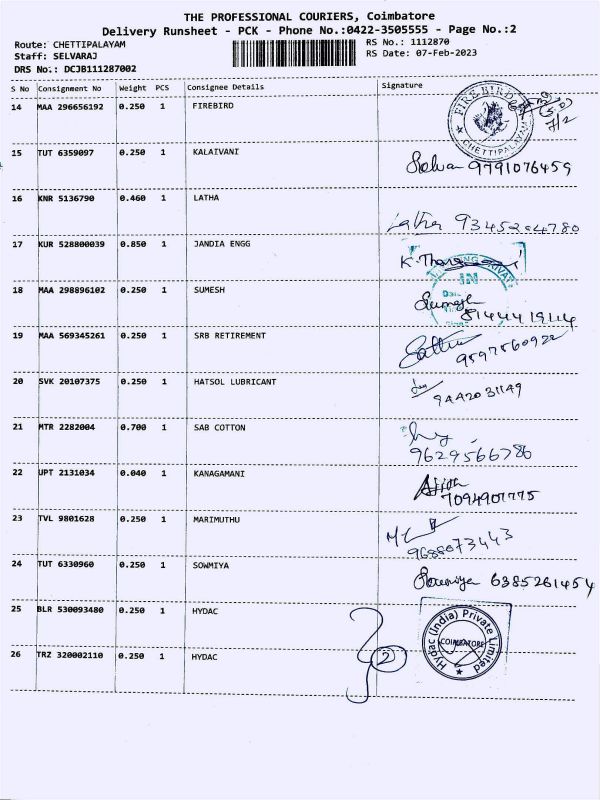 THE PROFESSIONAL COURIERS, Coimbatore
Delivery Runsheet - PCK - Phone No.:0422-3505555 - Page No.:2
Route: CHETTIPALAYAM
RS No.: 1112870
Staff: SELVARAJ
RS Date: 07-Feb-2023
DRS No.: DCJB111287002
S No Consignment No Weight PCS Consignee Details Signature
14 MAA 296656192 0.250 1 FIREBIRD
FIREBIRD
CHETTIPALAYAM
7/2
15 TUT 6359097 0.250 1 KALAIVANI
9791076459
16 KNR 5136790 0.460 1 LATHA
Latha
17 KUR 528800039 0.850 1 JANDIA ENGG
18 MAA 298896102 0.250 1 SUMESH
Sumesh
19 MAA 569345261 0.250 1 SRB RETIREMENT
9597560922
20 SVK 20107375 0.250 1 HATSOL LUBRICANT
9442031149
21 MTR 2282004 0.700 1 SAB COTTON
9629566786
22 UPT 2131034 0.040 1 KANAGAMANI
7094901775
23 TVL 9801628 0.250 1 MARIMUTHU
9688073443
24 TUT 6330960 0.250 1 SOWMIYA
Sowmiya 6385261454
25 BLR 530093480 0.250 1 HYDAC
Hydac (India) Private Limited
COIMBATORE
26 TRZ 320002110 0.250 1 HYDAC
2